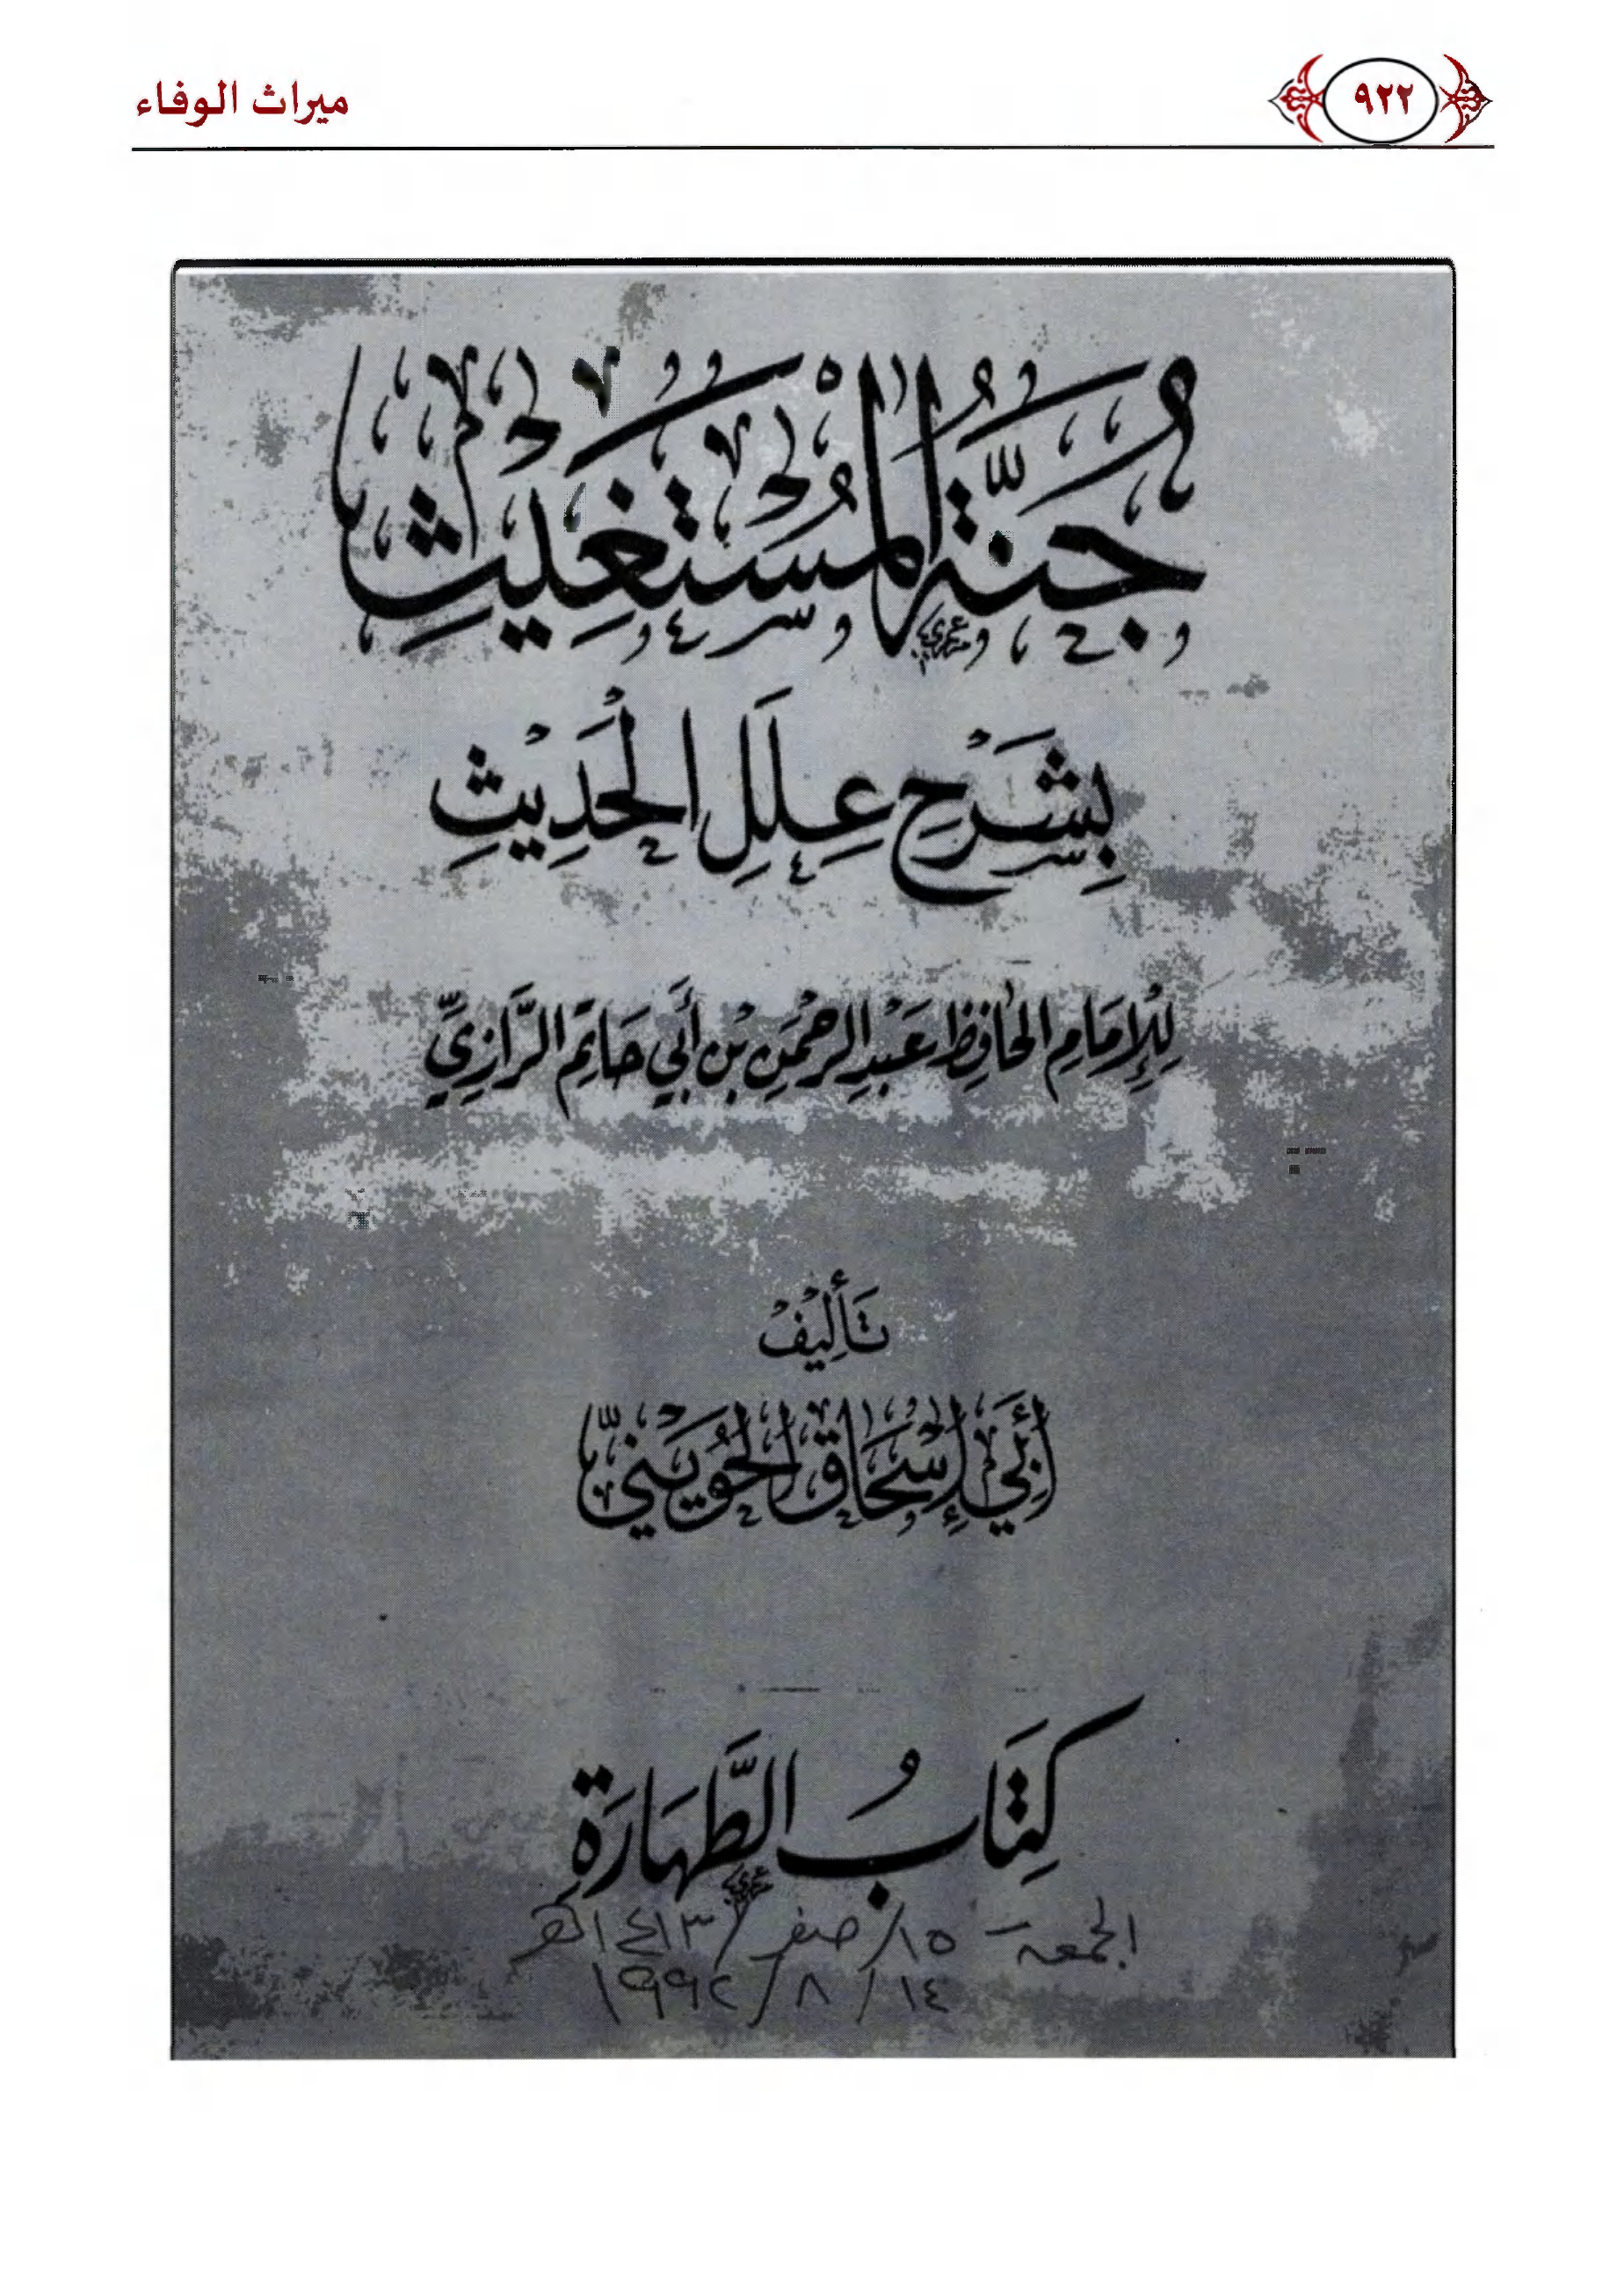 ٩٢٢
ميراث الوفاء
جُنَّةُ الْمُسْتَغِيْثِ
بِشَرْحِ عِلَلِ الْحَدِيْثِ
لِلْإِمَامِ الحَافِظِ عَبْدِ الرحْمَنِ بْنِ أَبِي حَاتِمٍ الرَّازِيِّ
تَأْلِيْفُ
أَبِي إِسْحَاقَ الحُوَيْنِيِّ
كِتَابُ الطَّهَارَةِ
الجمعة - ١٥/ صفر / ١٤١٣هـ
١٤ / ٨ / ١٩٩٢